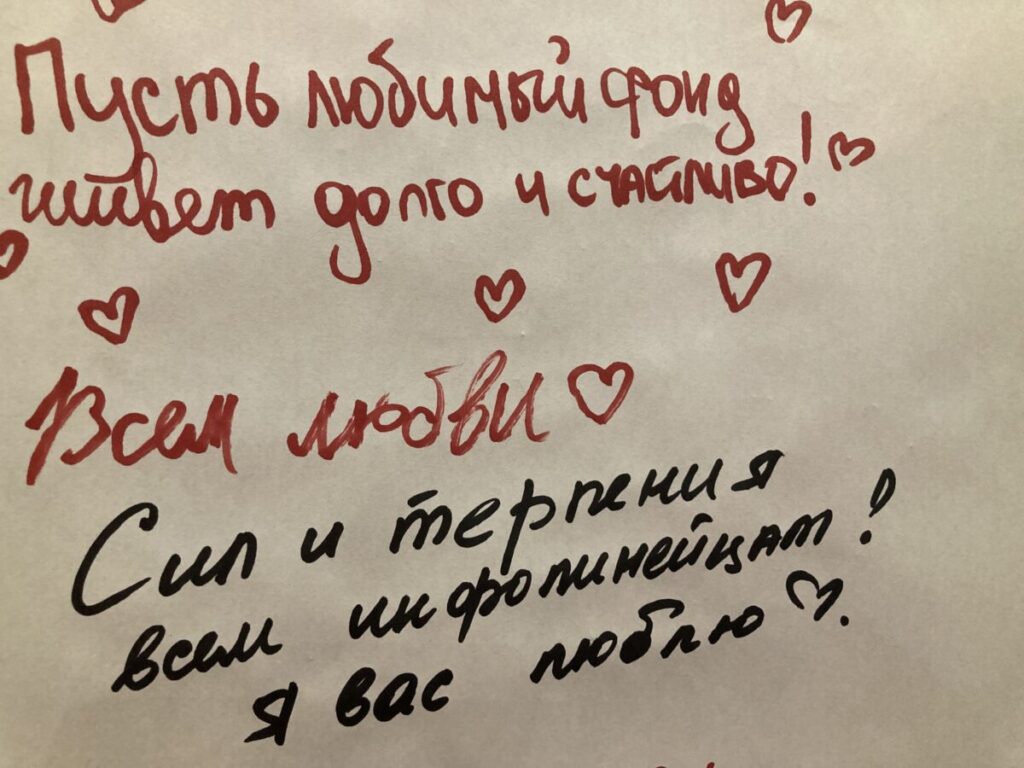 Пусть любимый фонд
живет долго и счастливо!
Всем любви
Сил и терпения
всем инфолинейцам!
Я вас люблю.